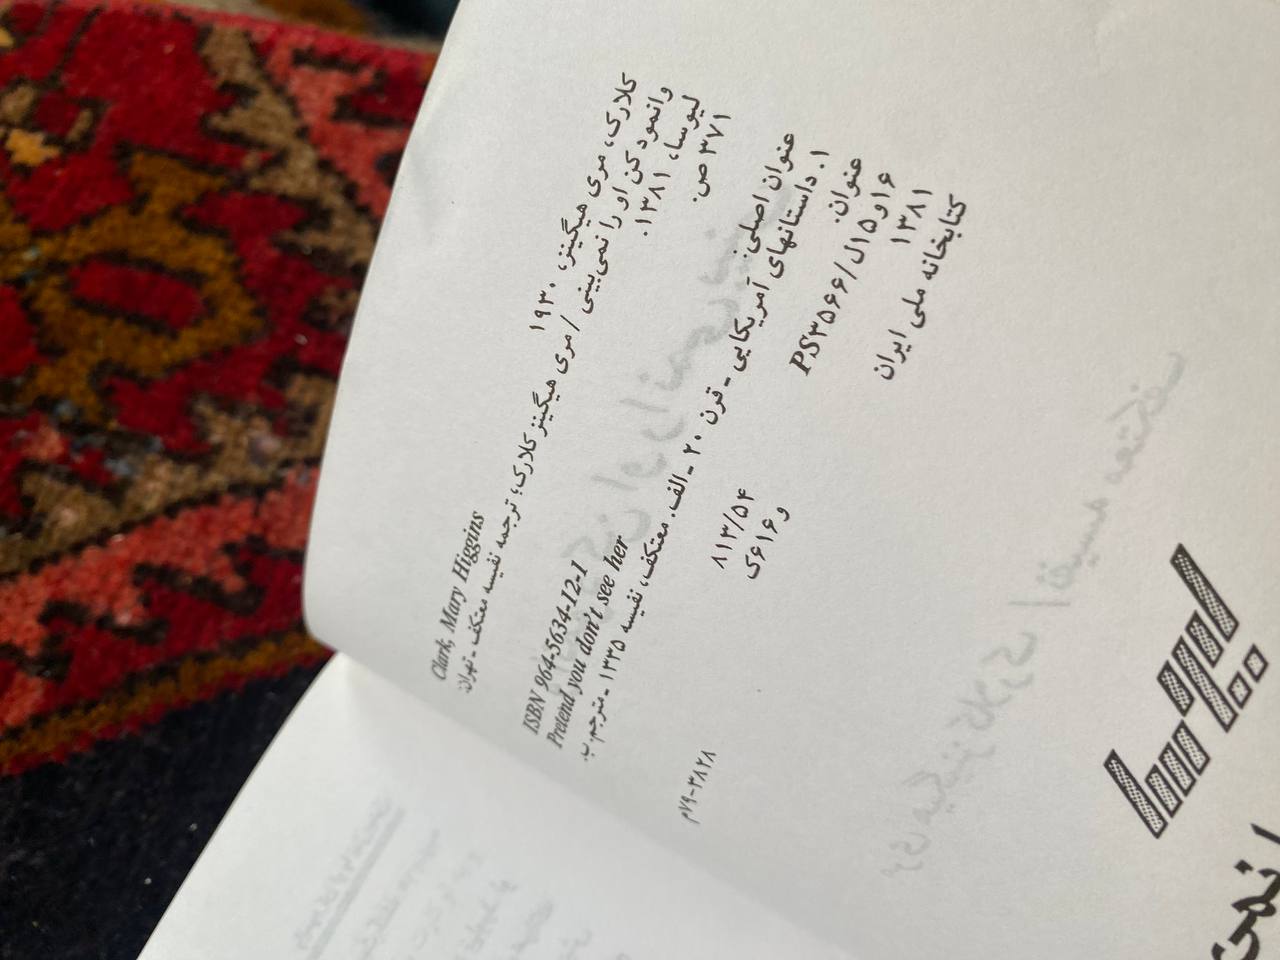 کلارک، مری هیگینز، ۱۹۳۰ Clark, Mary Higgins
وانمود کن او را نمی‌بینی / مری هیگینز کلارک؛ ترجمه نفیسه معتکف - تهران:
لیوسا، ۱۳۸۱.
۳۷۱ ص. ISBN 964-5634-12-1
عنوان اصلی: Pretend you don't see her
۱. داستانهای آمریکایی - قرن ۲۰ - الف. معتکف، نفیسه ۱۳۳۵ - مترجم. ب.
عنوان.
۱۶و۱۵ل/PS۳۵۶۶ ۸۱۳/۵۴
۱۳۸۱ و۶۱۶ک
کتابخانه ملی ایران ۳۸۲۸-۷۹م
لیوسا